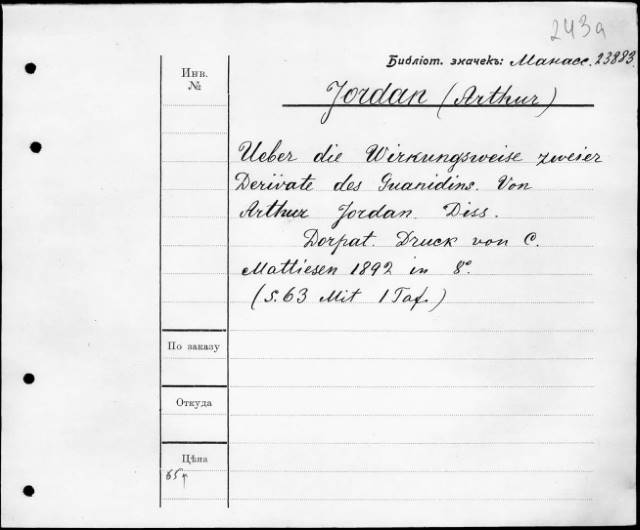 243a
Библіот. значекъ: Манасс. 23883.
Инв.
№
Jordan (Arthur)
Ueber die Wirkungsweise zweier
Derivate des Guanidins. Von
Arthur Jordan. Diss.
Dorpat. Druck von C.
Mattiesen 1892 in 8°.
(S. 63 Mit 1 Taf.)
По заказу
Откуда
Цѣна
65